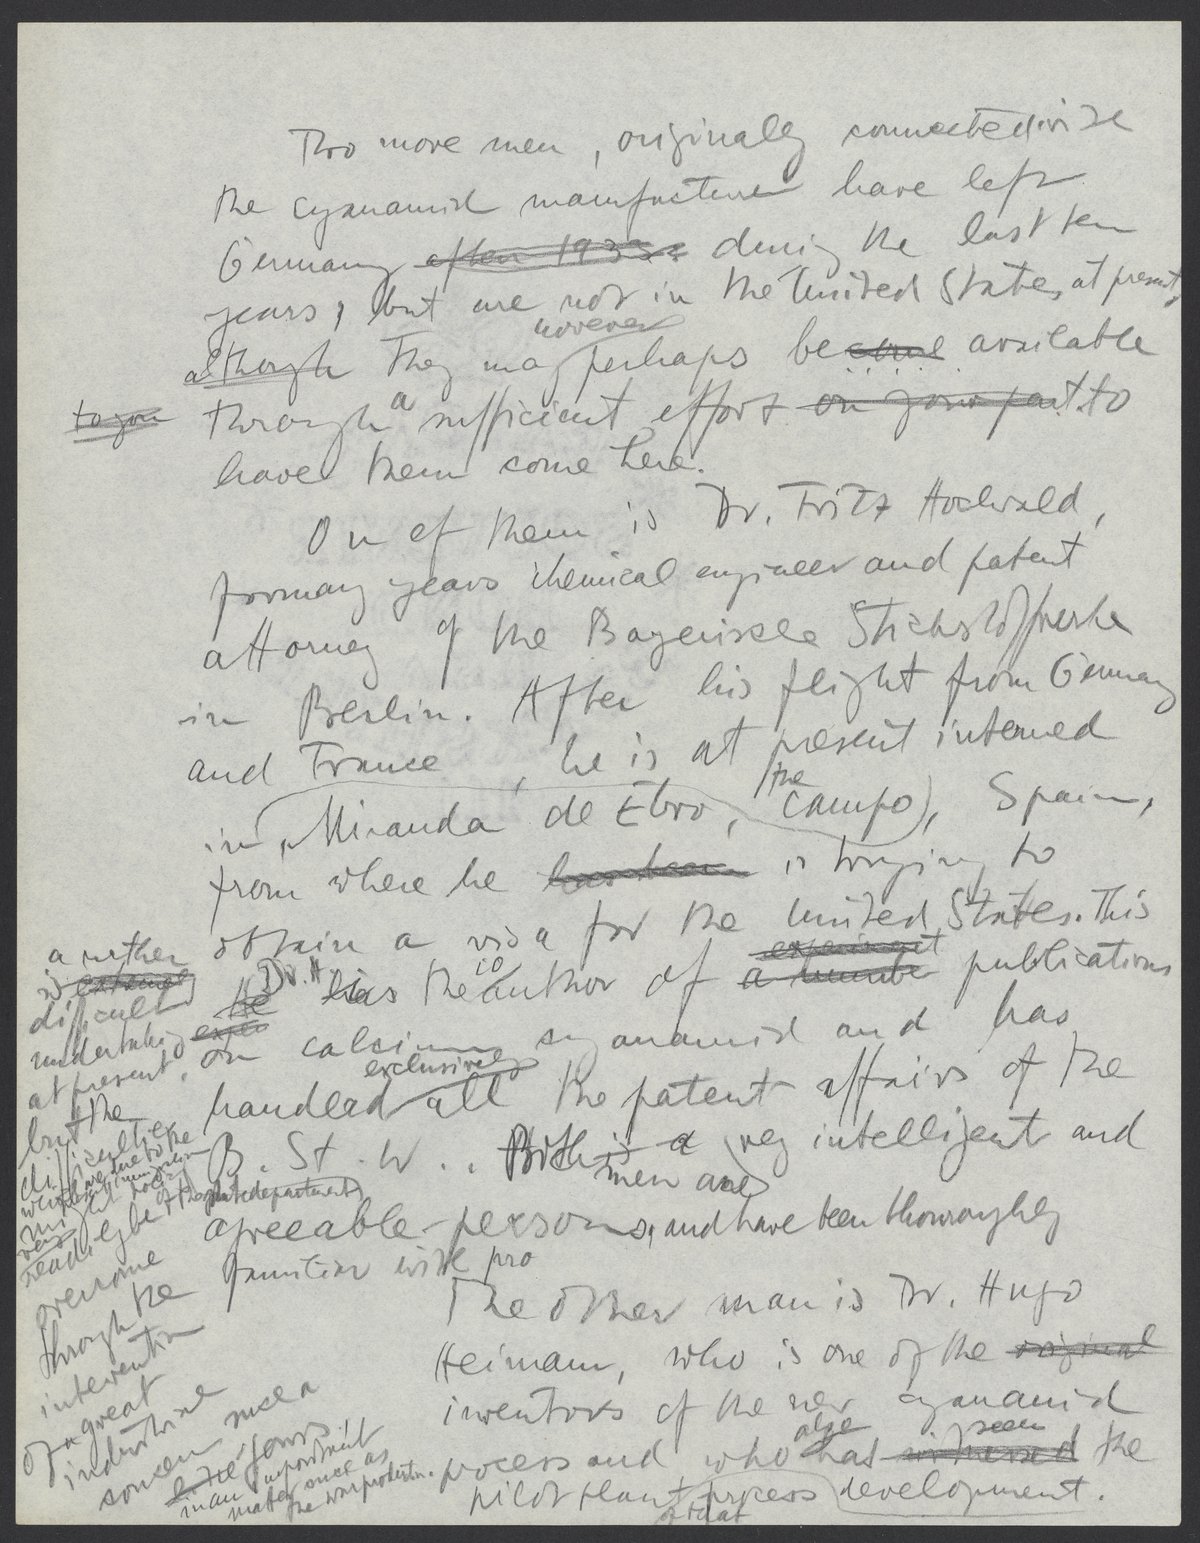 Two more men, originally connected with
the cyanamid manufacture have left
Germany after 1933 during the last ten
years, but are not in the United States at present,
although They may however perhaps become available
to you through a sufficient effort on your part to
have them come here.
On of them is Dr. Fritz Hochwald,
for many years chemical engineer and patent
attorney of the Bayerische Stickstoffwerke
in Berlin. After his flight from Germany
and France, he is at present interned
in Miranda de Ebro, the campo), Spain,
from where he has been is trying to
obtain a visa for the United States. This
is extreme a rather difficult undertaking at present,
but the difficulties which are due to the
might
readily be
overcome
through the
intervention
of a great
industrial
concern such a
like yours
in an important
matter such as
the war production.
of the state department
He Dr. H. is the author of a number publications
on calcium cyanamid and has
handled exclusively all the patent affairs of the
B. St. W.. Both is a men are very intelligent and
agreeable persons, and have been thoroughly
familiar with pro
The other man is Dr. Hugo
Heimann, who is one of the original
inventors of the new cyanamid
process and who also has witnessed seen the
pilot plant process development.
of that